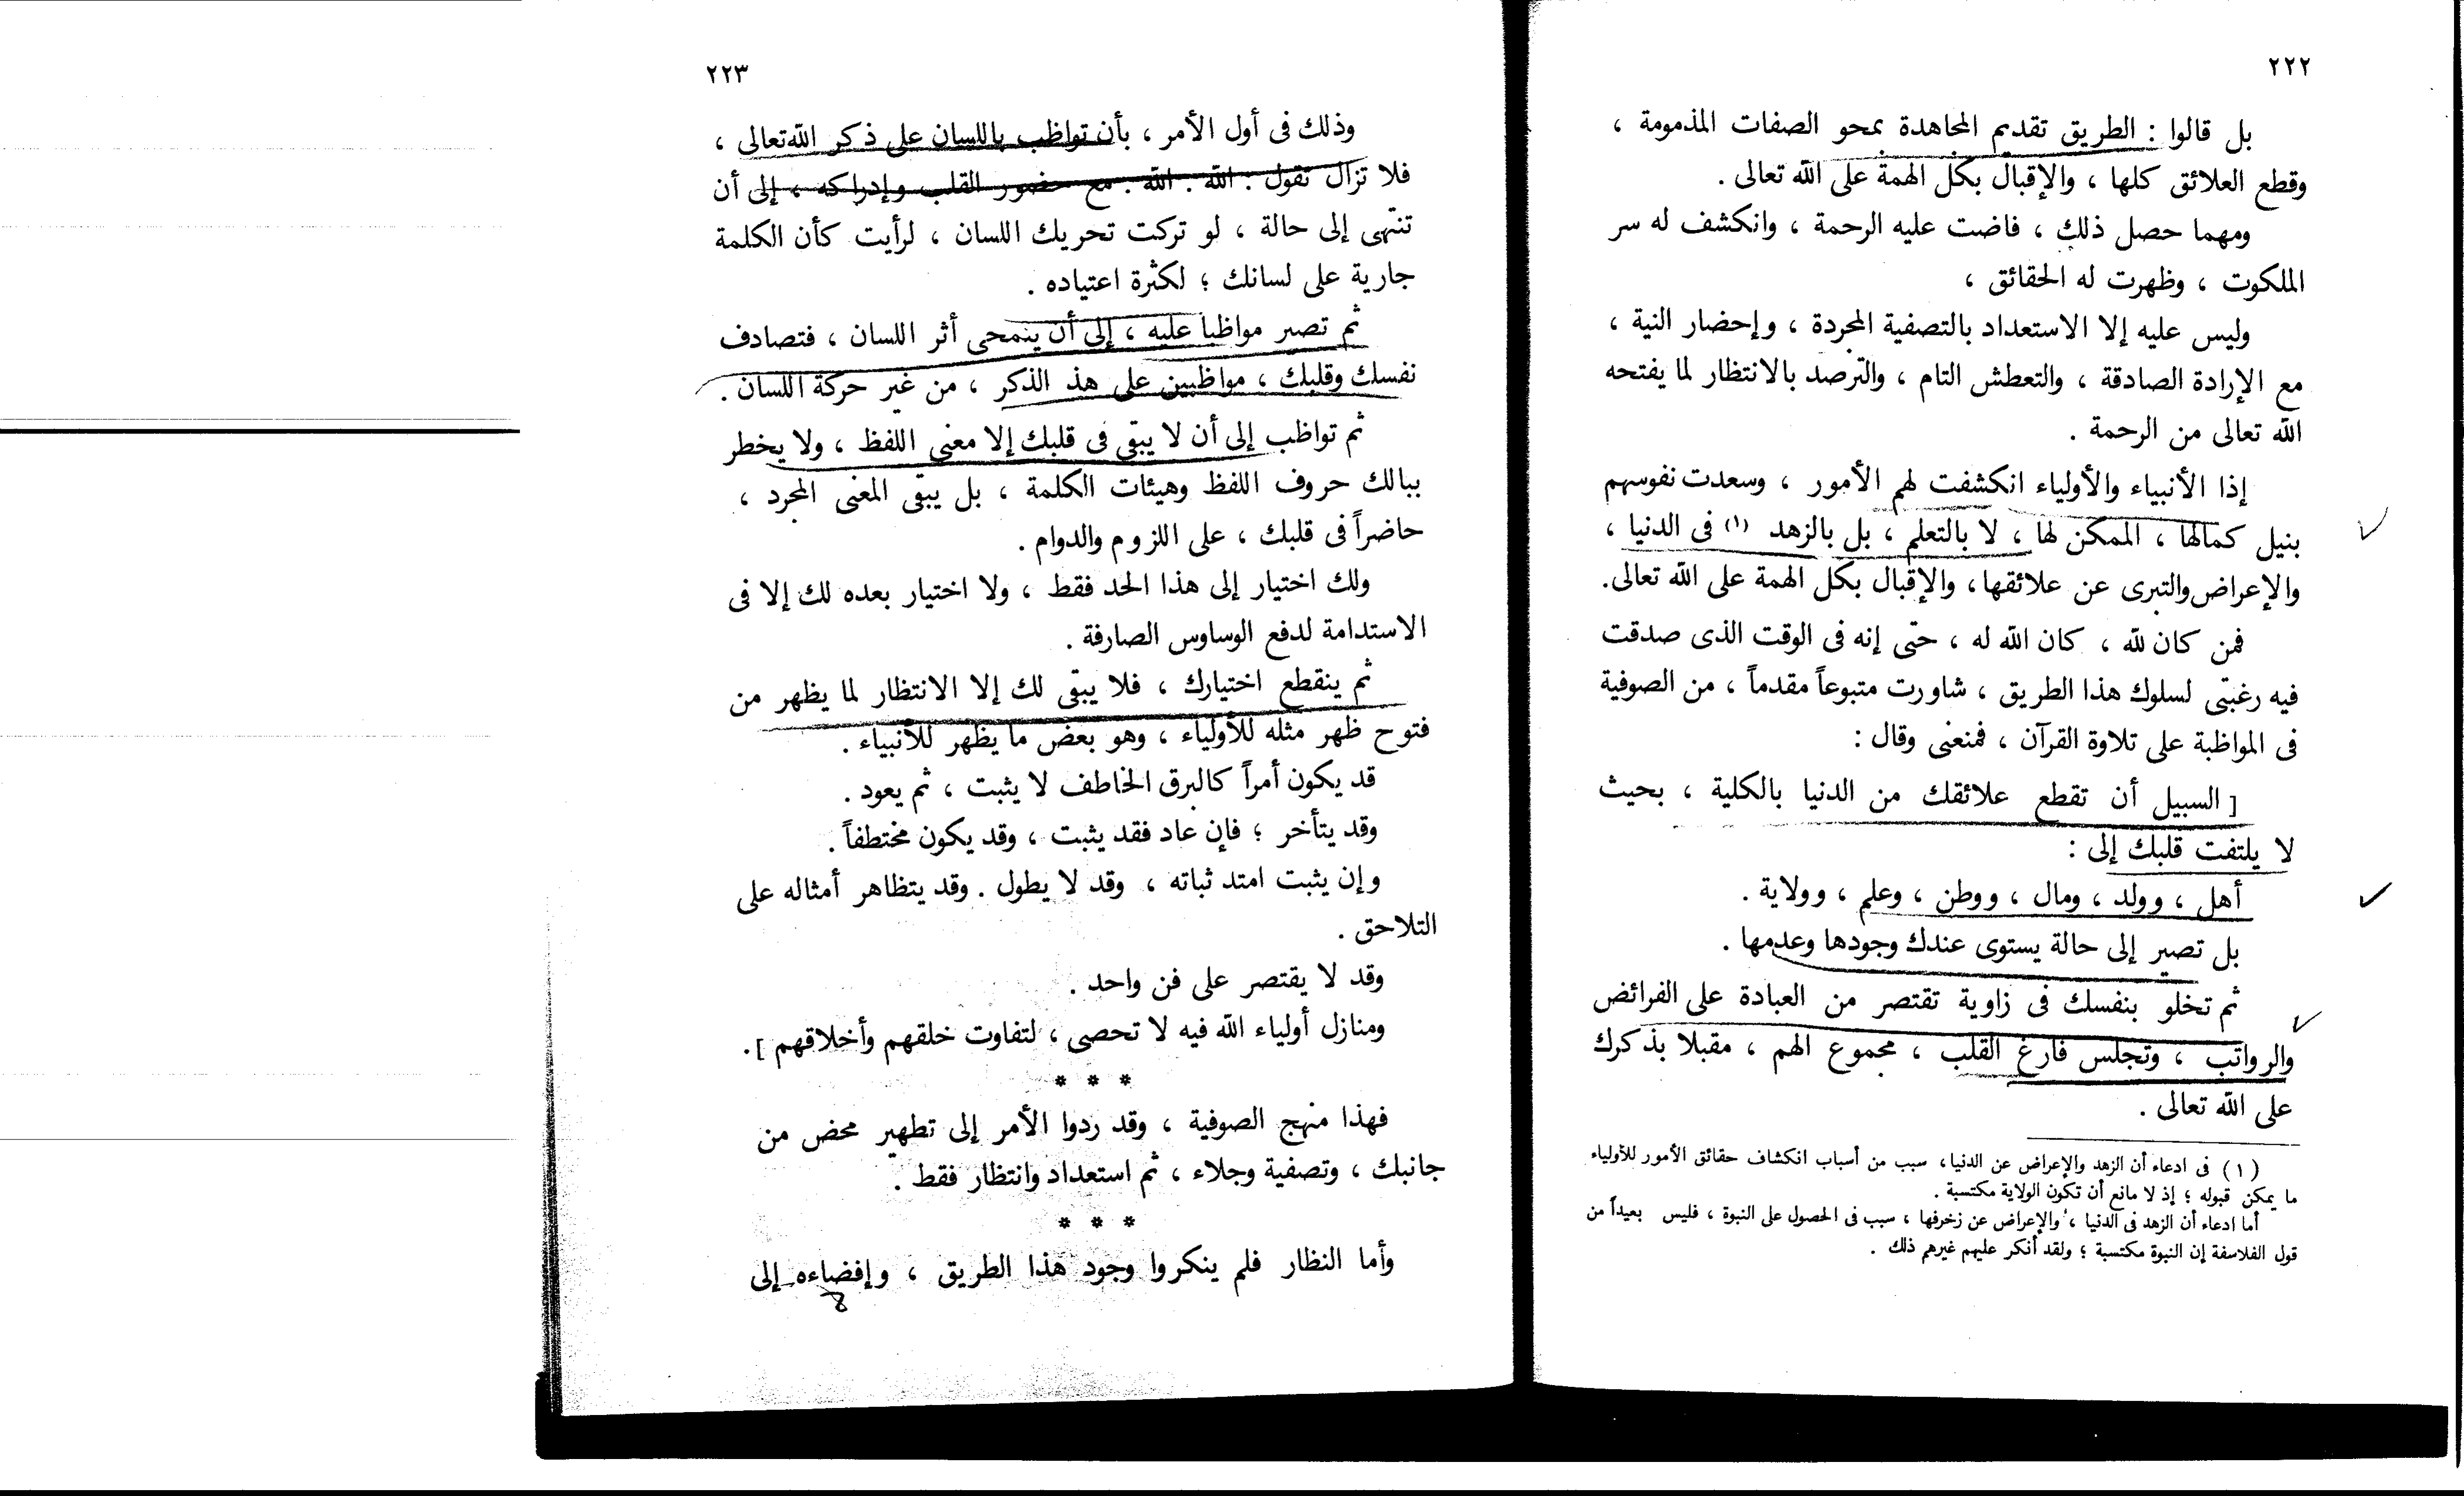 ٢٢٢
بل قالوا : الطريق تقديم المجاهدة بمحو الصفات المذمومة ،
وقطع العلائق كلها ، والإقبال بكل الهمة على الله تعالى .
ومهما حصل ذلك ، فاضت عليه الرحمة ، وانكشف له سر
الملكوت ، وظهرت له الحقائق ،
وليس عليه إلا الاستعداد بالتصفية المجردة ، وإحضار النية ،
مع الإرادة الصادقة ، والتعطش التام ، والترصد بالانتظار لما يفتحه
الله تعالى من الرحمة .
إذا الأنبياء والأولياء انكشفت لهم الأمور ، وسعدت نفوسهم
بنيل كمالها ، الممكن لها ، لا بالتعلم ، بل بالزهد (١) فى الدنيا ،
والإعراض والتبرى عن علائقها ، والإقبال بكل الهمة على الله تعالى.
فمن كان لله ، كان الله له ، حتى إنه فى الوقت الذى صدقت
فيه رغبتى لسلوك هذا الطريق ، شاورت متبوعاً مقدماً ، من الصوفية
فى المواظبة على تلاوة القرآن ، فمنعنى وقال :
[ السبيل أن تقطع علائقك من الدنيا بالكلية ، بحيث
لا يلتفت قلبك إلى :
أهل ، وولد ، ومال ، ووطن ، وعلم ، وولاية .
بل تصير إلى حالة يستوى عندك وجودها وعدمها .
ثم تخلو بنفسك فى زاوية تقتصر من العبادة على الفرائض
والرواتب ، وتجلس فارغ القلب ، مجموع الهم ، مقبلا بذكرك
على الله تعالى .
(١) فى ادعاء أن الزهد والإعراض عن الدنيا، سبب من أسباب انكشاف حقائق الأمور للأولياء
ما يمكن قبوله ؛ إذ لا مانع أن تكون الولاية مكتسبة .
أما ادعاء أن الزهد فى الدنيا ، والإعراض عن زخرفها ، سبب فى الحصول على النبوة ، فليس بعيداً من
قول الفلاسفة إن النبوة مكتسبة ؛ ولقد أنكر عليهم غيرهم ذلك .
٢٢٣
وذلك فى أول الأمر ، بأن تواظب باللسان على ذكر الله تعالى ،
فلا تزال تقول : الله . الله . مع حضور القلب وإدراكه ، إلى أن
تنتهى إلى حالة ، لو تركت تحريك اللسان ، لرأيت كأن الكلمة
جارية على لسانك ؛ لكثرة اعتياده .
ثم تصير مواظبا عليه ، إلى أن ينمحى أثر اللسان ، فتصادف
نفسك وقلبك ، مواظبين على هذ الذكر ، من غير حركة اللسان .
ثم تواظب إلى أن لا يبقى فى قلبك إلا معنى اللفظ ، ولا يخطر
ببالك حروف اللفظ وهيئات الكلمة ، بل يبقى المعنى المجرد ،
حاضراً فى قلبك ، على اللزوم والدوام .
ولك اختيار إلى هذا الحد فقط ، ولا اختيار بعده لك إلا فى
الاستدامة لدفع الوساوس الصارفة .
ثم ينقطع اختيارك ، فلا يبقى لك إلا الانتظار لما يظهر من
فتوح ظهر مثله للأولياء ، وهو بعض ما يظهر للأنبياء .
قد يكون أمراً كالبرق الخاطف لا يثبت ، ثم يعود .
وقد يتأخر ؛ فإن عاد فقد يثبت ، وقد يكون مختطفاً .
وإن يثبت امتد ثباته ، وقد لا يطول . وقد يتظاهر أمثاله على
التلاحق .
وقد لا يقتصر على فن واحد .
ومنازل أولياء الله فيه لا تحصى ، لتفاوت خلقهم وأخلاقهم ].
* * *
فهذا منهج الصوفية ، وقد ردوا الأمر إلى تطهير محض من
جانبك ، وتصفية وجلاء ، ثم استعداد وانتظار فقط .
* * *
وأما النظار فلم ينكروا وجود هذا الطريق ، وإفضاءه إلى